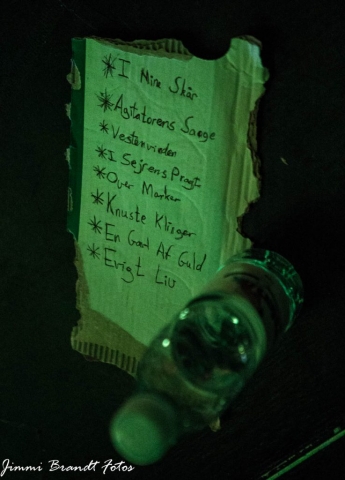 *I Mine Skår
*Agitatorens Sange
*Vestenvinden
*I Sejrens Pragt
*Over Marken
*Knuste Klinger
*En Gård Af Guld
*Evigt Liv
Jimmi Brandt Fotos